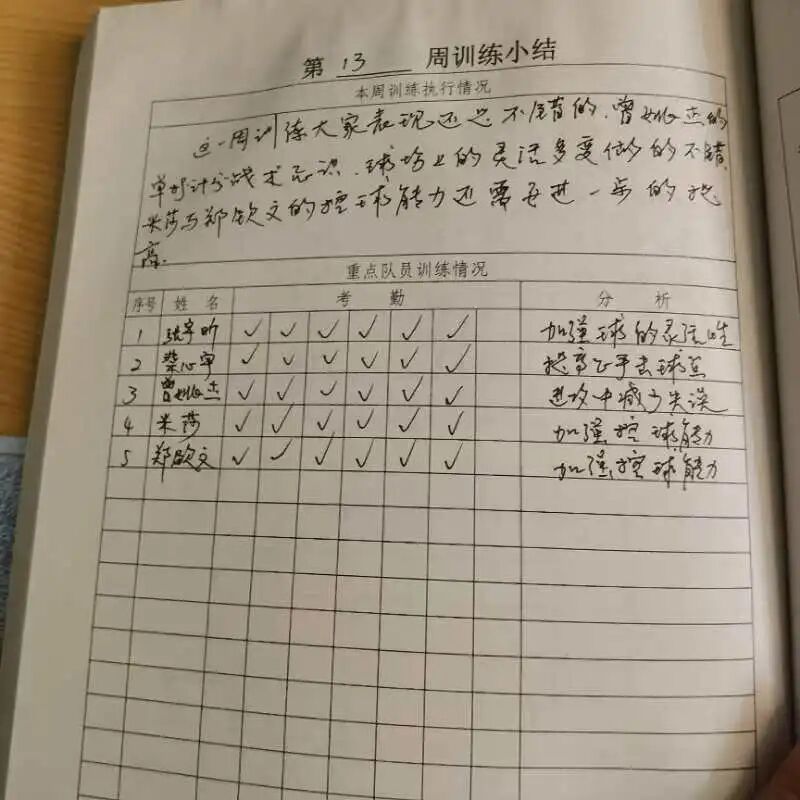 第 13 周训练小结
本周训练执行情况
这一周训练大家表现还是不错的,曾姚杰的
单打计分战术意识,球场上的灵活多变做的不错,
米莎与郑欣文的控球能力还需要进一步的提
高.
重点队员训练情况
序号 姓名 考勤 分析
1 张宇昕 ✓ ✓ ✓ ✓ ✓ ✓ 加强球的灵活性
2 ✓ ✓ ✓ ✓ ✓ ✓ 提高正手击球
3 曾姚杰 ✓ ✓ ✓ ✓ ✓ ✓ 进攻中减少失误
4 米莎 ✓ ✓ ✓ ✓ ✓ ✓ 加强控球能力
5 郑欣文 ✓ ✓ ✓ ✓ ✓ ✓ 加强控球能力